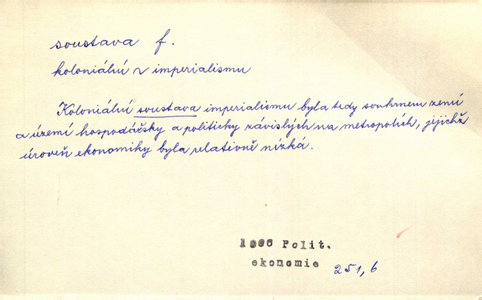 soustava f.
koloniální ~ imperialismu
Koloniální soustava imperialismu byla tedy souhrnem zemí
a území hospodářsky a politicky závislých na metropolích, jejichž
úroveň ekonomiky byla relativně nízká.
1960 Polit.
ekonomie 251,6